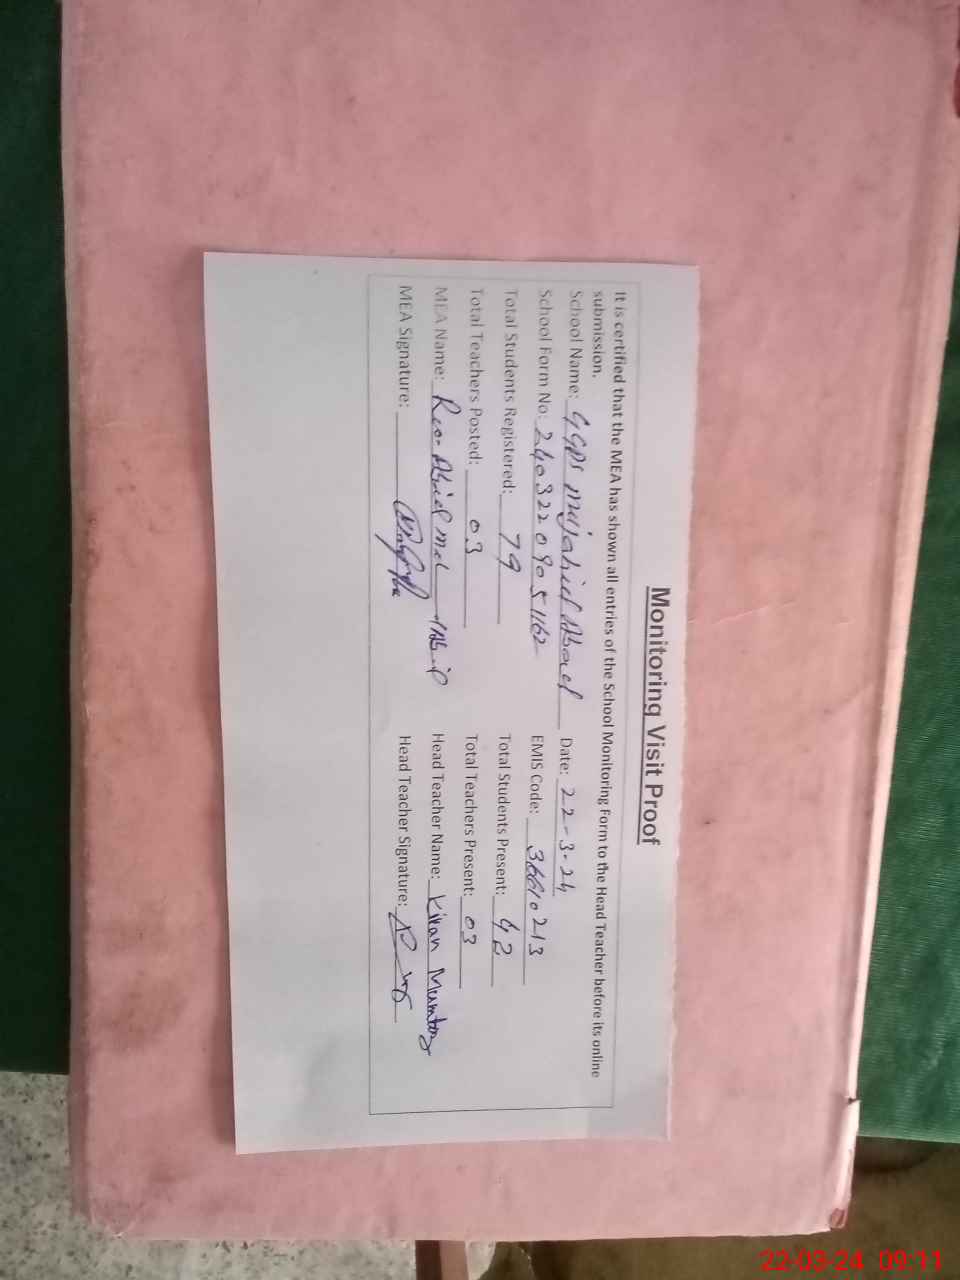 Monitoring Visit Proof
It is certified that the MEA has shown all entries of the School Monitoring Form to the Head Teacher before its online
submission.
School Name: GGPS Mujahid Abad Date: 22-3-24
School Form No: 24032209051162 EMIS Code: 36610213
Total Students Registered: 79 Total Students Present: 42
Total Teachers Posted: 03 Total Teachers Present: 03
MEA Name: Abid Head Teacher Name: Kiran Mumtaz
MEA Signature: Head Teacher Signature:
22-03-24 09:11